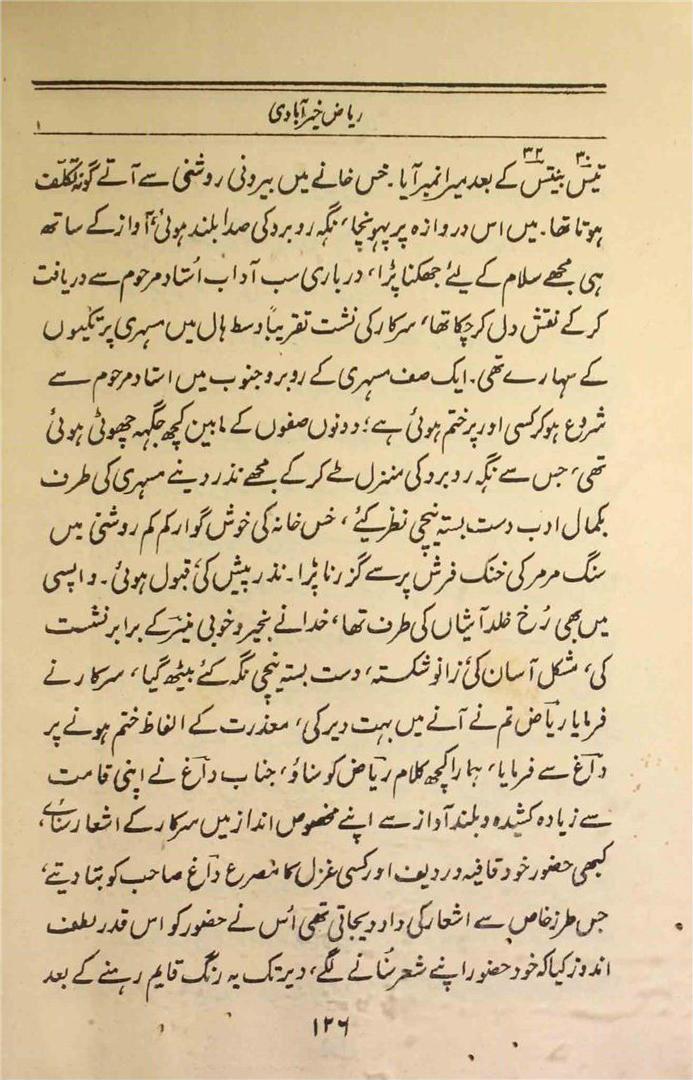 ریاض خیرآبادی
۱
۳۰ ۳۲
تیس بتیس کے بعد میرا نمبر آیا۔ خس خانے میں بیرونی روشنی سے آتے گونہ تکلّف
ہوتا تھا۔ میں اس دروازہ پر پہونچا، نگہ روبرو کی صدا بلند ہوئی، آواز کے ساتھ
ہی مجھے سلام کے لیٔے جھکنا پڑا، درباری سب آداب اُستاد مرحوم سے دریافت
کر کے نقش دل کر چکا تھا، سرکار کی نشت تقریباً وسط ہال میں مسہری پر تکیوں
کے سہارے تھی۔ ایک صف مسہری کے روبرو جنوب میں استاد مرحوم سے
شروع ہو کر کسی اور پر ختم ہوئی ہے؛ دونوں صفوں کے مابین کچھ جگہہ چھوٹی ہوئی
تھی، جس سے نگہ روبرو کی منزل طے کر کے مجھے نذر دینے مسہری کی طرف
بکمال ادب دست بستہ نیچی نظر کیٔے، خس خانہ کی خوش گوار کم کم روشنی میں
سنگ مرمر کی خنک فرش پر سے گزرنا پڑا۔ نذر پیش کی قبول ہوئی۔ واپسی
میں بھی رُخ خلد آشیاں کی طرف تھا، خدا نے بخیر و خوبی منیرؔ کے برابر نشست
کی، مشکل آسان کی زانو شکستہ، دست بستہ نیچی نگہ کئے بیٹھ گیا، سرکار نے
فرمایا ریاضؔ تم نے آنے میں بہت دیر کی، معذرت کے الفاظ ختم ہونے پر
داغؔ سے فرمایا، ہمارا کچھ کلام ریاضؔ کو سناؤ، جناب داغؔ نے اپنی قامت
سے زیادہ کشیدہ و بلند آواز سے اپنے مخصوص انداز میں سرکار کے اشعار سنائے،
کبھی حضور خود قافیہ و ردیف اور کسی غزل کا مصرع داغؔ صاحب کو بتا دیتے،
جس طرز خاص سے اشعار کی داد دیجاتی تھی اُس نے حضور کو اس قدر لطف
اندوز کیا کہ خود حضور اپنے شعر سُنانے لگے، دیر تک یہ رنگ قایم رہنے کے بعد
۱۲۶